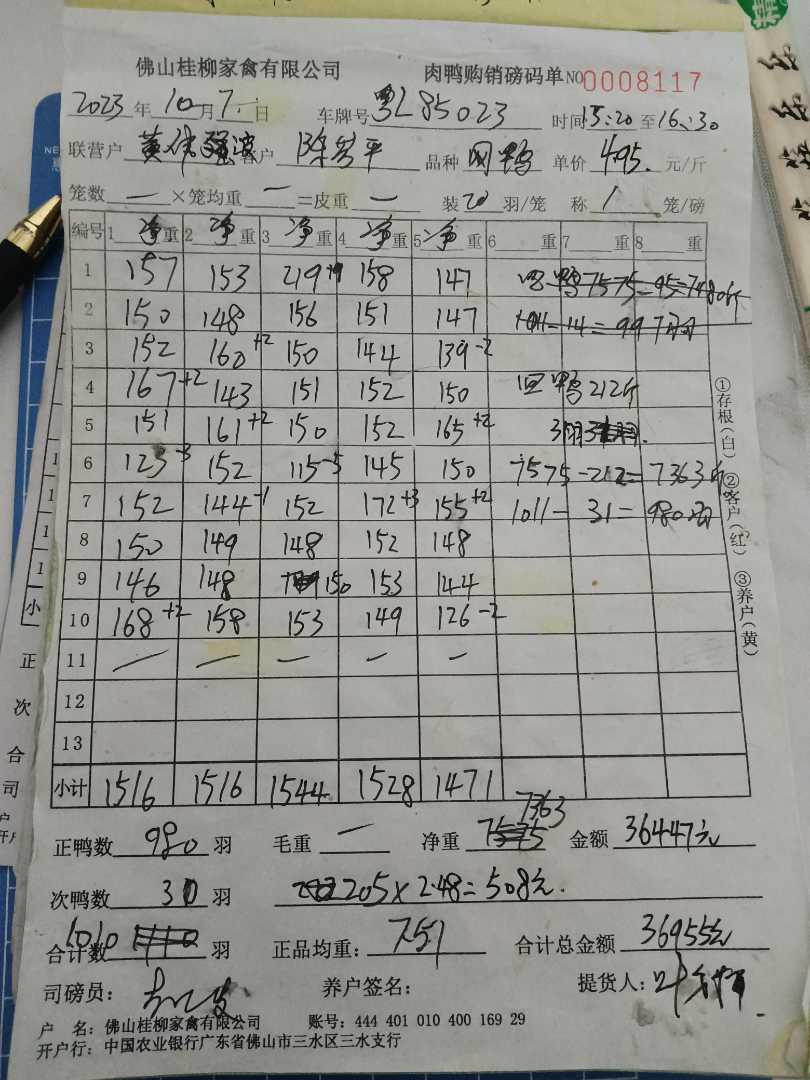 佛山桂柳家禽有限公司 肉鸭购销磅码单 NO 0008117
2023年10月7日 车牌号 粤L85023 时间15:20至16:30
联营户 黄 客户 平 品种 网鸭 单价 4.95 元/斤
笼数 — ×笼均重 — =皮重 — 装20羽/笼 称1笼/磅
编号 1净重 2净重 3净重 4净重 5净重 6重 7重 8重
1 157 153 219+9 158 147
2 150 148 156 151 147
3 152 160+2 150 144 139-2
4 167+2 143 151 152 150 212斤
5 151 161+2 150 152 165+2
6 123-3 152 115-5 145 150 7575-212=7363斤
7 152 144-1 152 172+3 155+2 1011-31=980羽
8 150 149 148 152 148
9 146 148 150 153 144
10 168+2 158 153 149 126-2
11 — — — — —
12
13
小计 1516 1516 1544 1528 1471
①存根(白) ②客户(红) ③养户(黄)
正鸭数 980 羽 毛重 — 净重 7363 金额 36447元
次鸭数 30 羽 205×2.48=508元.
合计数 1010 羽 正品均重: 7.51 合计总金额 36955元
司磅员: 养户签名: 提货人:
户 名: 佛山桂柳家禽有限公司 账号: 444 401 010 400 169 29
开户行: 中国农业银行广东省佛山市三水区三水支行